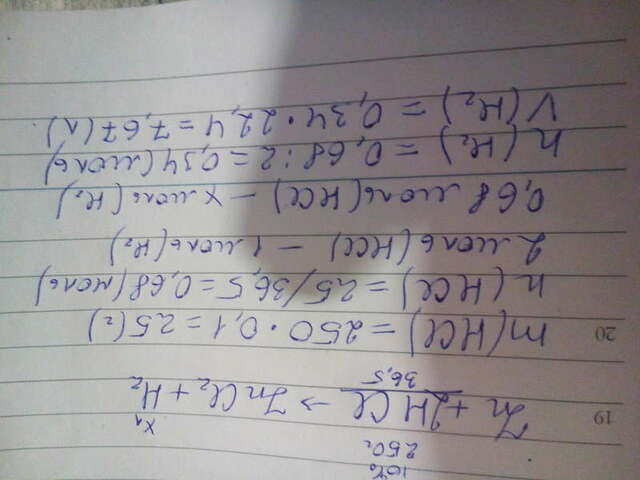 10%
250г
xл
19 Zn + 2HCl → ZnCl₂ + H₂
36,5
20 m(HCl) = 250 · 0,1 = 25 (г)
n(HCl) = 25/36,5 = 0,68 (моль)
2 моль (HCl) – 1 моль (H₂)
0,68 моль (HCl) – x моль (H₂)
n(H₂) = 0,68 : 2 = 0,34 (моль)
V(H₂) = 0,34 · 22,4 = 7,67 (л).